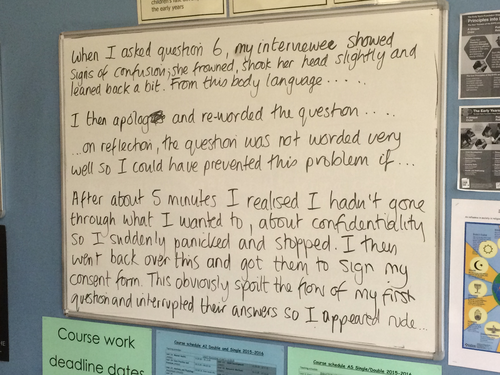 the early years
When I asked question 6, my interviewee showed
signs of confusion; she frowned, shook her head slightly and
leaned back a bit. From this body language.....
I then apolog and re-worded the question....
...on reflection, the question was not worded very
well so I could have prevented this problem if...
After about 5 minutes I realised I hadn't gone
through what I wanted to, about confidentiality
so I suddenly panicked and stopped. I then
went back over this and got them to sign my
consent form. This obviously spoilt the flow of my first
question and interrupted their answers so I appeared rude...
Course work
deadline dates
Course schedule A2 Double and Single 2015-2016
Course schedule AS Single/Double 2015-2016
Principles into
The Early Years